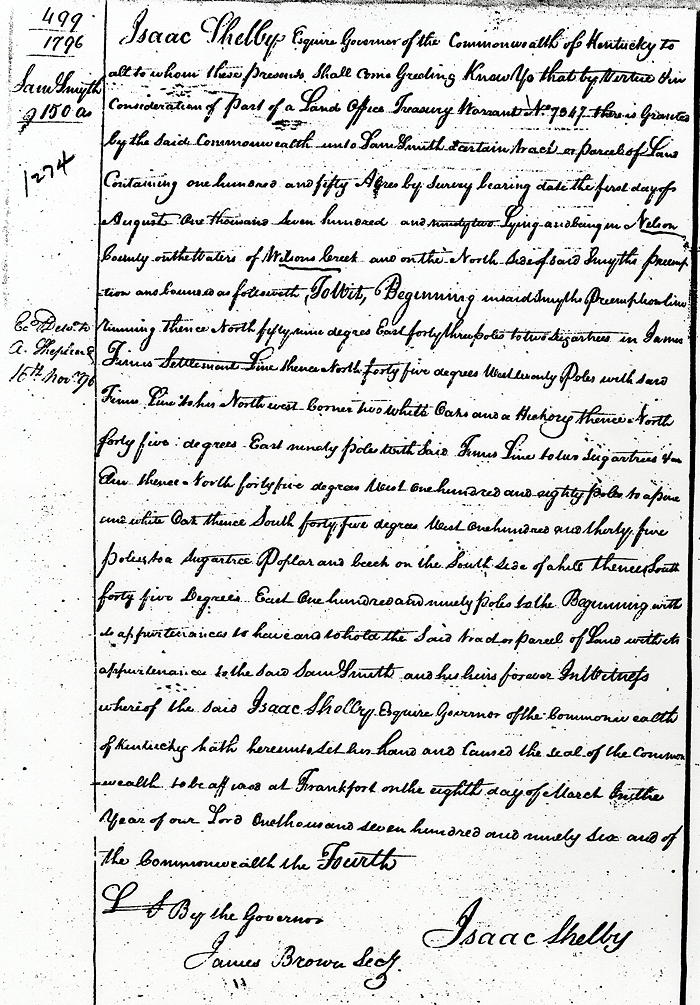 499
1796
Sam Smyth
150 as
1274
Isaac Shelby Esquire Governor of the Commonwealth of Kentucky to
all to whom these presents Shall Come Greeting Know Ye that by Virtue & in
Consideration of Part of a Land Office Treasury Warrant No 7347 there is Granted
by the said Commonwealth unto Sam Smith a certain tract or parcel of Land
Containing one hundred and fifty Acres by Survey bearing date the first day of
August One thousand Seven hundred and ninety two Lying and being in Nelson
County on the Waters of Wilsons Creek and on the North Side of said Smyths Preemp
-tion and bounded as followeth, To Wit, Beginning in said Smyths Preemption line
running thence North fifty nine degrees East forty three poles to two Sugartrees in James
Settlement Line thence North forty five degrees West twenty Poles with said
Line to his North west Corner two White Oaks and a Hickory thence North
forty five degrees East ninety poles with Said Line to two Sugartrees &
Elm thence North forty five degrees West One hundred and eighty poles to a
and white Oak thence South forty five degrees West One hundred and thirty five
poles to a Sugartree Poplar and beech on the South Side of a hill thence South
forty five Degrees East One hundred and ninety poles to the Beginning with
its appurtenances to have and to hold the Said tract or parcel of Land with its
appurtenance to the said Sam Smith and his heirs forever In Witness
whereof the said Isaac Shelby Esquire Governor of the Commonwealth
of Kentucky hath hereunto Set his hand and Caused the seal of the Common
-wealth to be affixed at Frankfort on the eighth day of March In the
Year of our Lord One thousand seven hundred and ninety six and of
the Commonwealth the Fourth
L S By the Governor
Isaac Shelby
James Brown Secy.
A.
16th Nov. 96